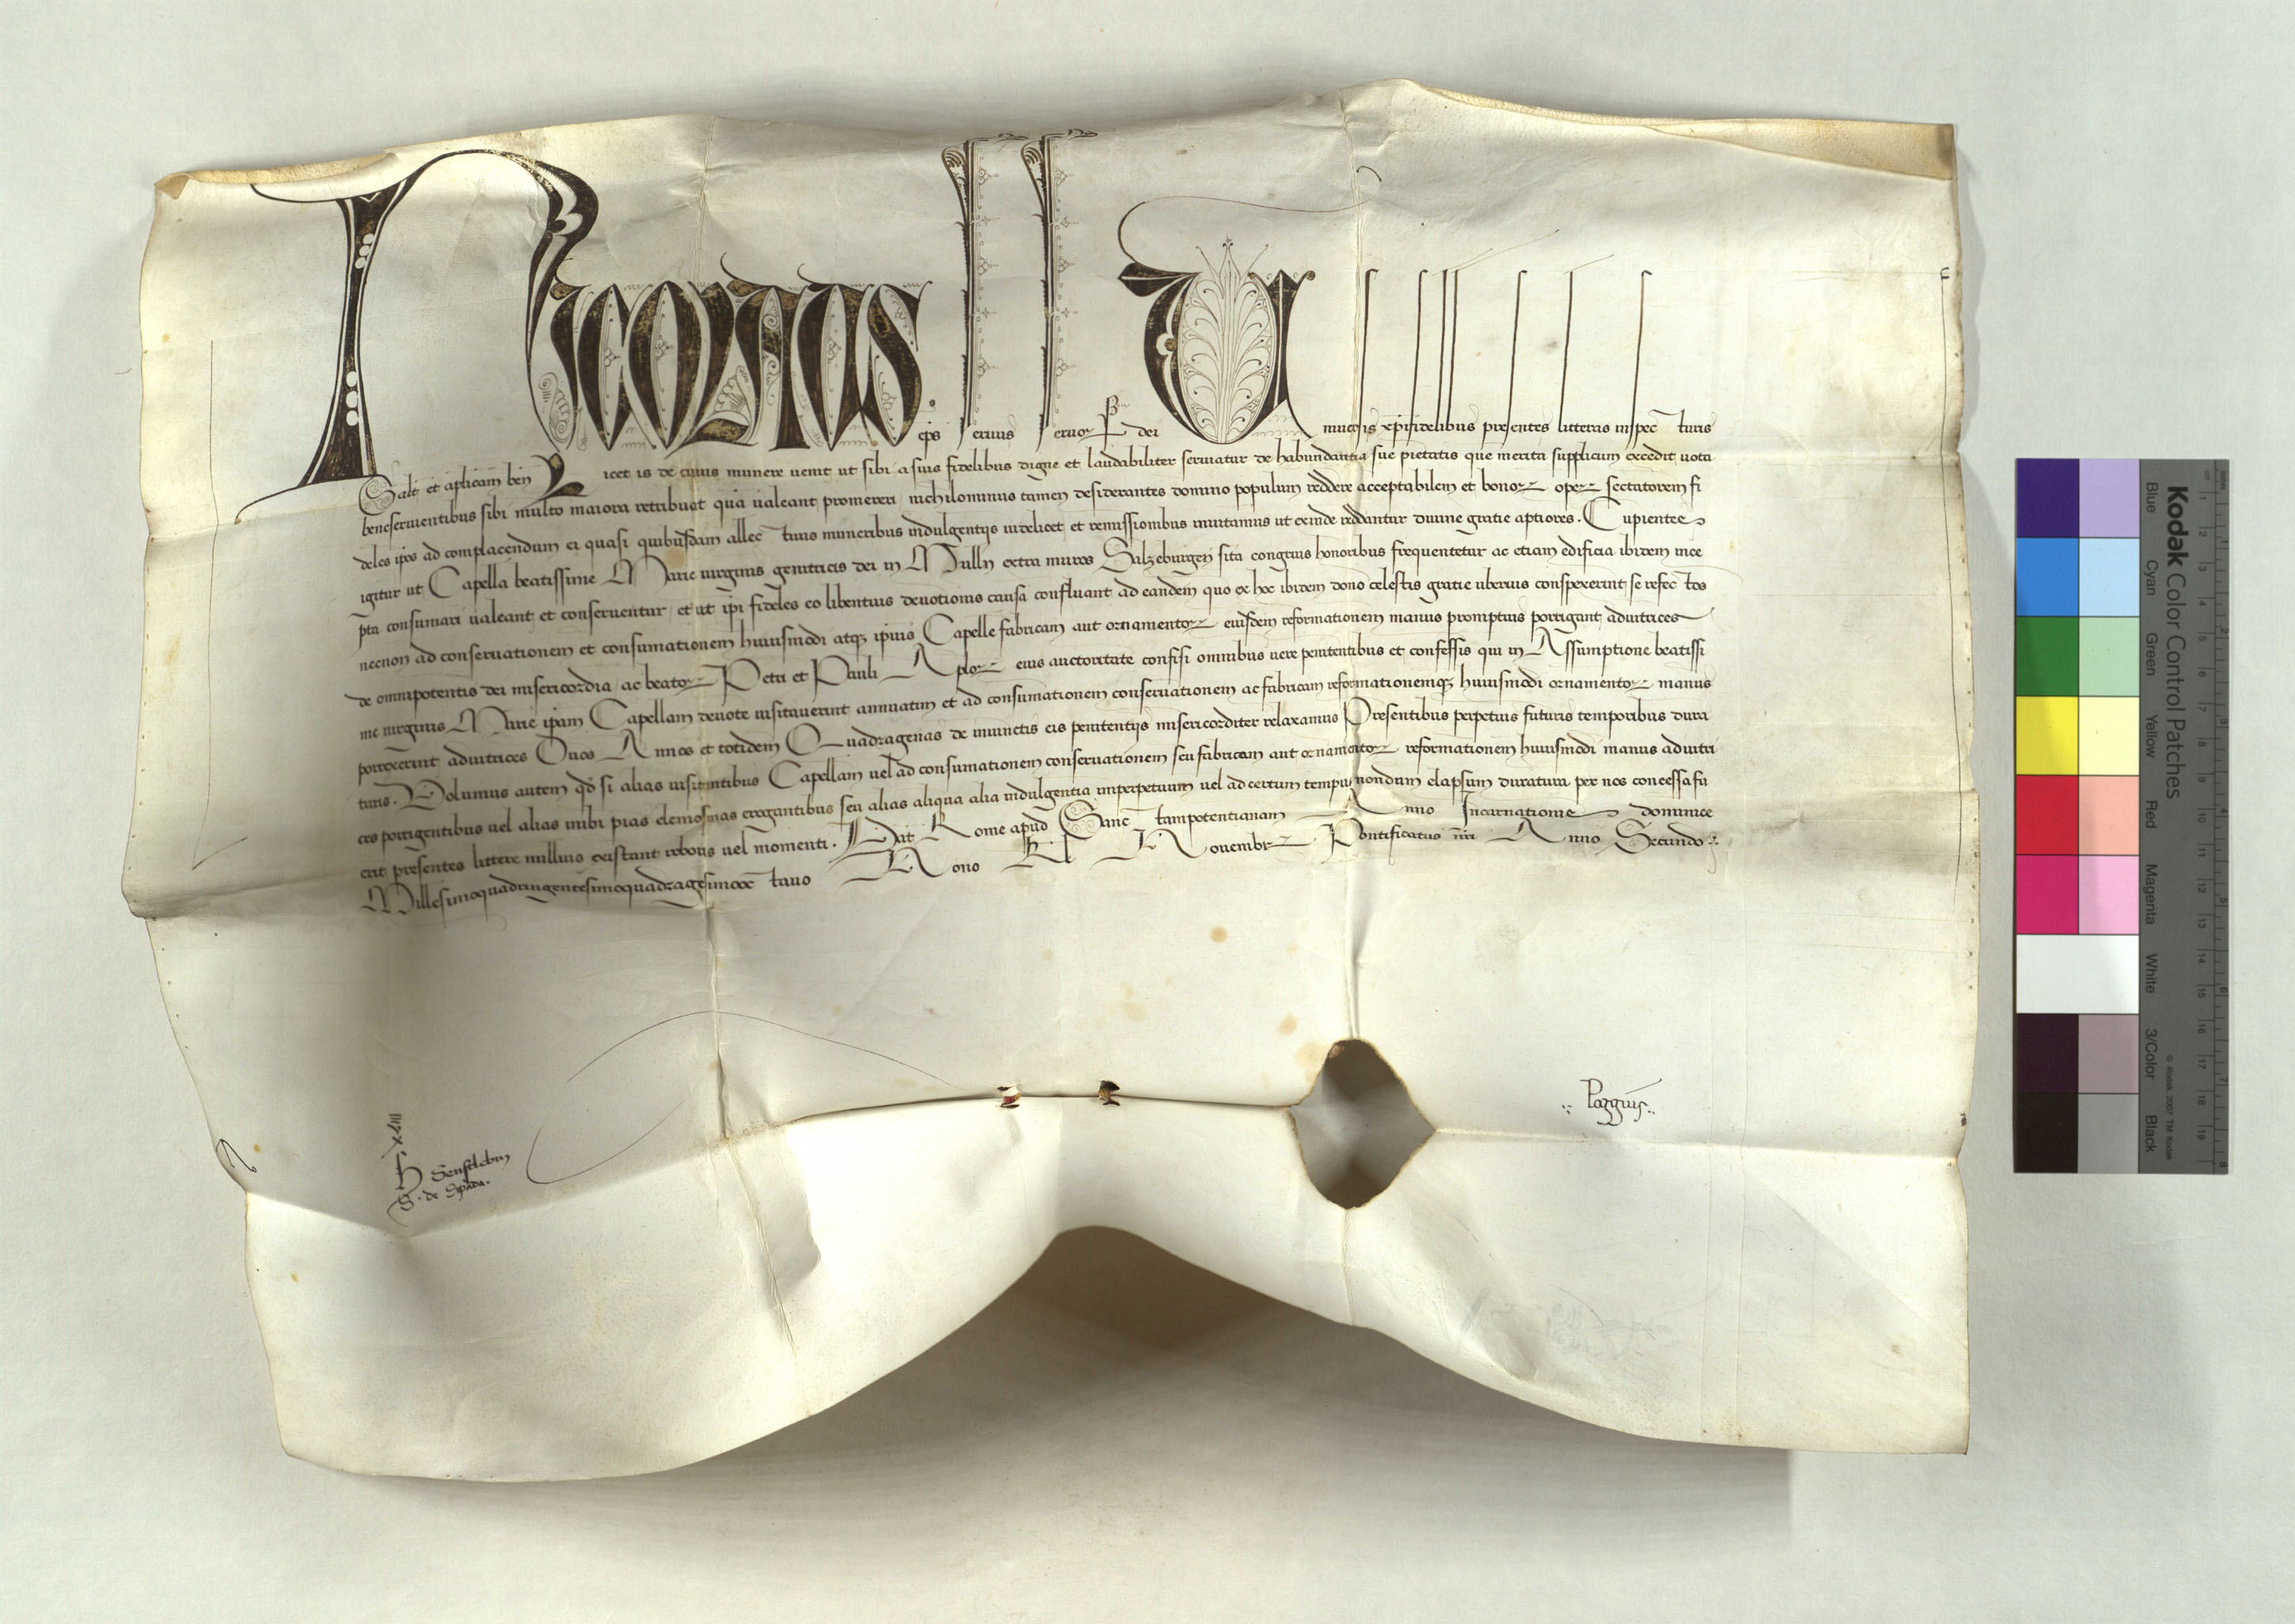 Nicolaus eps servus servor dei Universis xpifidelibus presentes litteras inspecturis
Salt et aplicam ben Licet is de cuius munere venit ut sibi a suis fidelibus digne et laudabiliter serviatur de habundantia sue pietatis que merita supplicum excedit et vota
beneservientibus sibi multo maiora retribuat qua valeant promereri nichilominus tamen desiderantes domino populum reddere acceptabilem et bonor oper sectatorem fi
deles ipos ad complacendum ei quasi quibusdam allectivis muneribus indulgentijs videlicet et remissionibus invitamus ut exinde reddantur divine gratie aptiores. Cupientes
igitur ut Capella beatissime Marie virginis genitricis dei in Mulln extra muros Salzeburgen sita congruis honoribus frequentetur ac etiam edificia ibidem ince
pta consumari valeant et conserventur et ut ipi fideles eo libentius devotionis causa confluant ad eandem quo ex hoc ibidem dono celestis gratie uberius conspexerint se refectos
necnon ad conservationem et consumationem huiusmodi atq ipius Capelle fabricam aut ornamentor eiusdem reformationem manus promptius porrigant adiutrices
de omnipotentis dei misericordia ac beator Petri et Pauli Aplor eius auctoritate confisi omnibus vere penitentibus et confessis qui in Assumptione beatissi
me virginis Marie ipam Capellam devote visitaverint annuatim et ad consumationem conservationem ac fabricam reformationemq huiusmodi ornamentor manus
porrexerint adiutrices Duos Annos et totidem Quadragenas de iniunctis eis penitentijs misericorditer relaxamus Presentibus perpetuis futuris temporibus dura
turis. Volumus autem qd si alias visitantibus Capellam vel ad consumationem conservationem seu fabricam aut ornamentor reformationem huiusmodi manus adiutri
ces porrigentibus vel alias inibi pias elemosinas erogantibus seu alias aliqua alia indulgentia imperpetuum vel ad certum tempus nondum elapsum duratura per nos concessa fu
erit presentes littere nullius existant roboris vel momenti. Dat Rome apud Sanctampotentianam Anno Incarnationis dominice
Millesimoquadringentesimoquadragesimooctavo Nono Kl Novembr Pontificatus nri Anno Secundo
Poggius
xiiii
H Senftleben
S. de Spada.
Kodak Color Control Patches
© Kodak, 2007 TM: Kodak
Blue Cyan Green Yellow Red Magenta White 3/Color Black